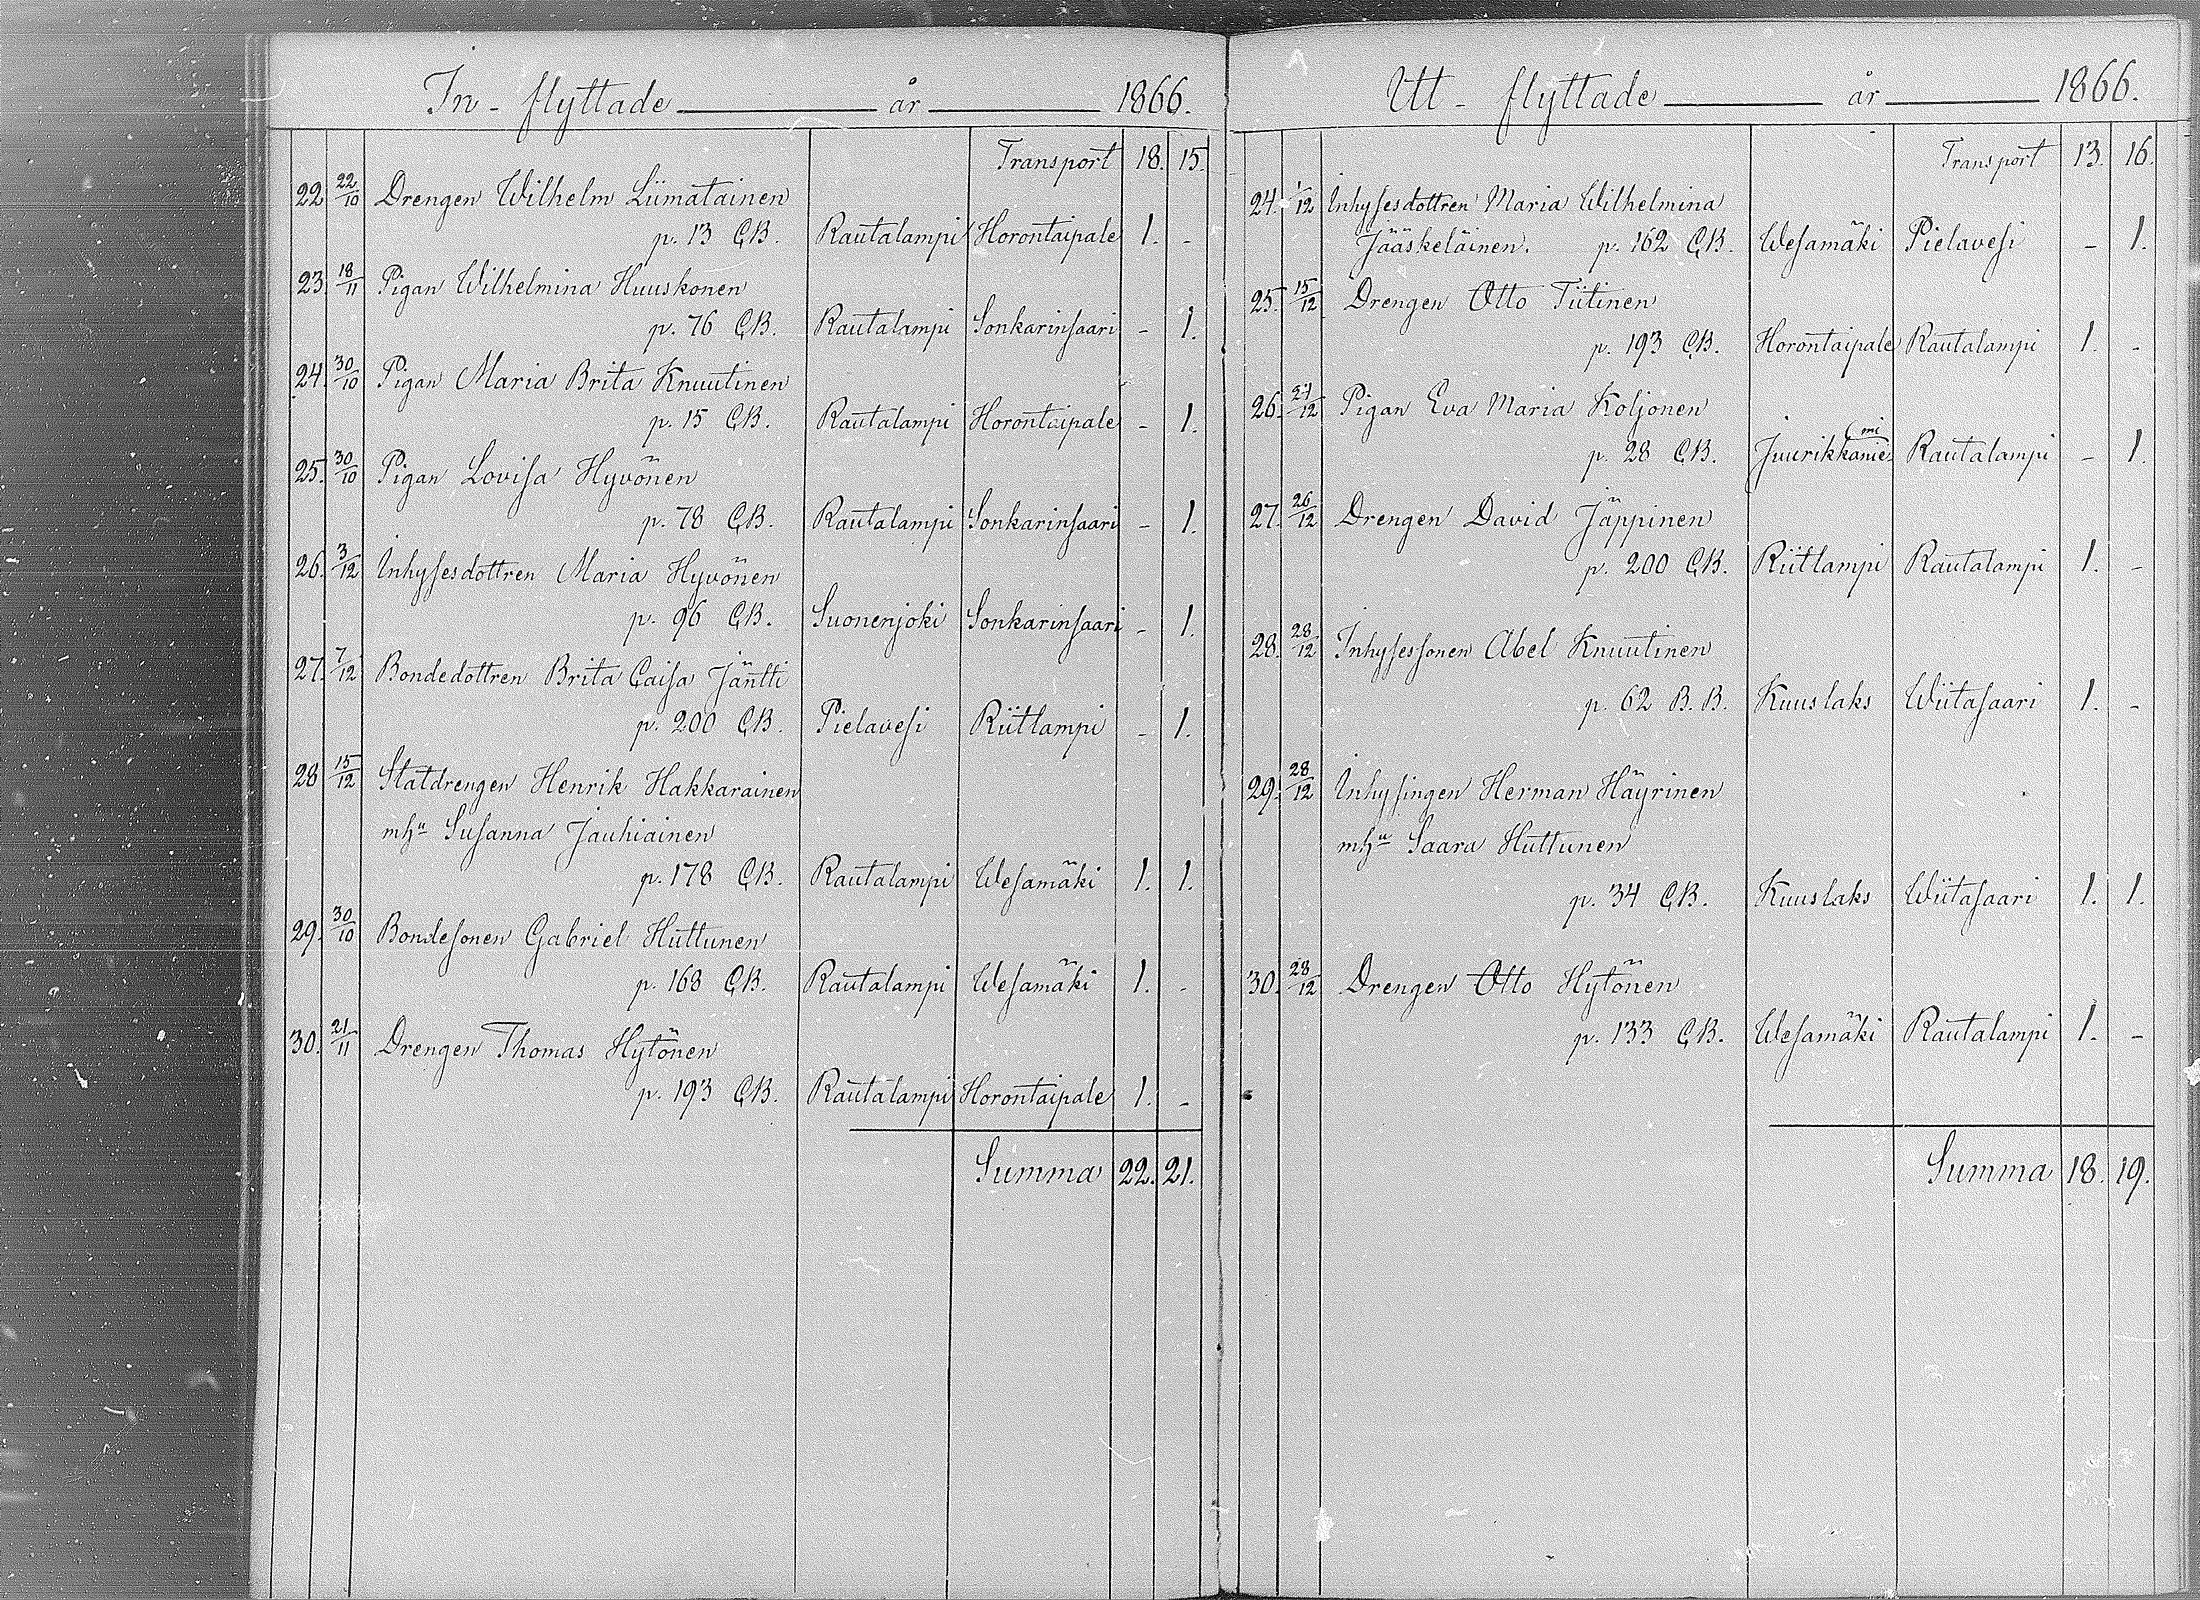 In-flyttade år 1866.
Transport 18. 15.
22 22/10 Drengen Wilhelm Liimatainen
p. 13 CB. Rautalampi Horontaipale 1. -
23. 18/11 Pigan Wilhelmina Huuskonen
p. 76 CB. Rautalampi Sonkarinsaari - 1.
24. 30/10 Pigan Maria Brita Knuutinen
p. 15 CB. Rautalampi Horontaipale - 1.
25. 30/10 Pigan Lovisa Hyvönen
p. 78 CB. Rautalampi Sonkarinsaari - 1.
26. 3/12 Inhysesdottren Maria Hyvönen
p. 96 CB. Suonenjoki Sonkarinsaari - 1.
27. 7/12 Bondedottren Brita Caisa Jäntti
p. 200 CB. Pielavesi Riitlampi - 1.
28 15/12 Statdrengen Henrik Hakkarainen
mhu Susanna Jauhiainen
p. 178 CB. Rautalampi Wesamäki 1. 1.
29. 30/10 Bondesonen Gabriel Huttunen
p. 168 CB. Rautalampi Wesamäki 1. -
30. 21/11 Drengen Thomas Hytönen
p. 193 CB. Rautalampi Horontaipale 1. -
Summa 22. 21.
Utt-flyttade år 1866.
Transport 13. 16.
24. 1/12 Inhysesdottren Maria Wilhelmina
Jääskeläinen. p. 162 CB. Wesamäki Pielavesi - 1.
25. 15/12 Drengen Otto Tiitinen
p. 193 CB. Horontaipale Rautalampi 1. -
26. 21/12 Pigan Eva Maria Koljonen
p. 28 CB. Juurikkanie(mi Rautalampi - 1.
27. 26/12 Drengen David Jäppinen
p. 200 CB. Riitlampi Rautalampi 1. -
28. 28/12 Inhysessonen Abel Knuutinen
p. 62 B.B. Kuuslaks Wiitasaari 1. -
29. 28/12 Inhysingen Herman Häyrinen
mhu Saara Huttunen
p. 34 CB. Kuuslaks Wiitasaari 1. 1.
30. 28/12 Drengen Otto Hytönen
p. 133 CB. Wesamäki Rautalampi 1. -
Summa 18. 19.